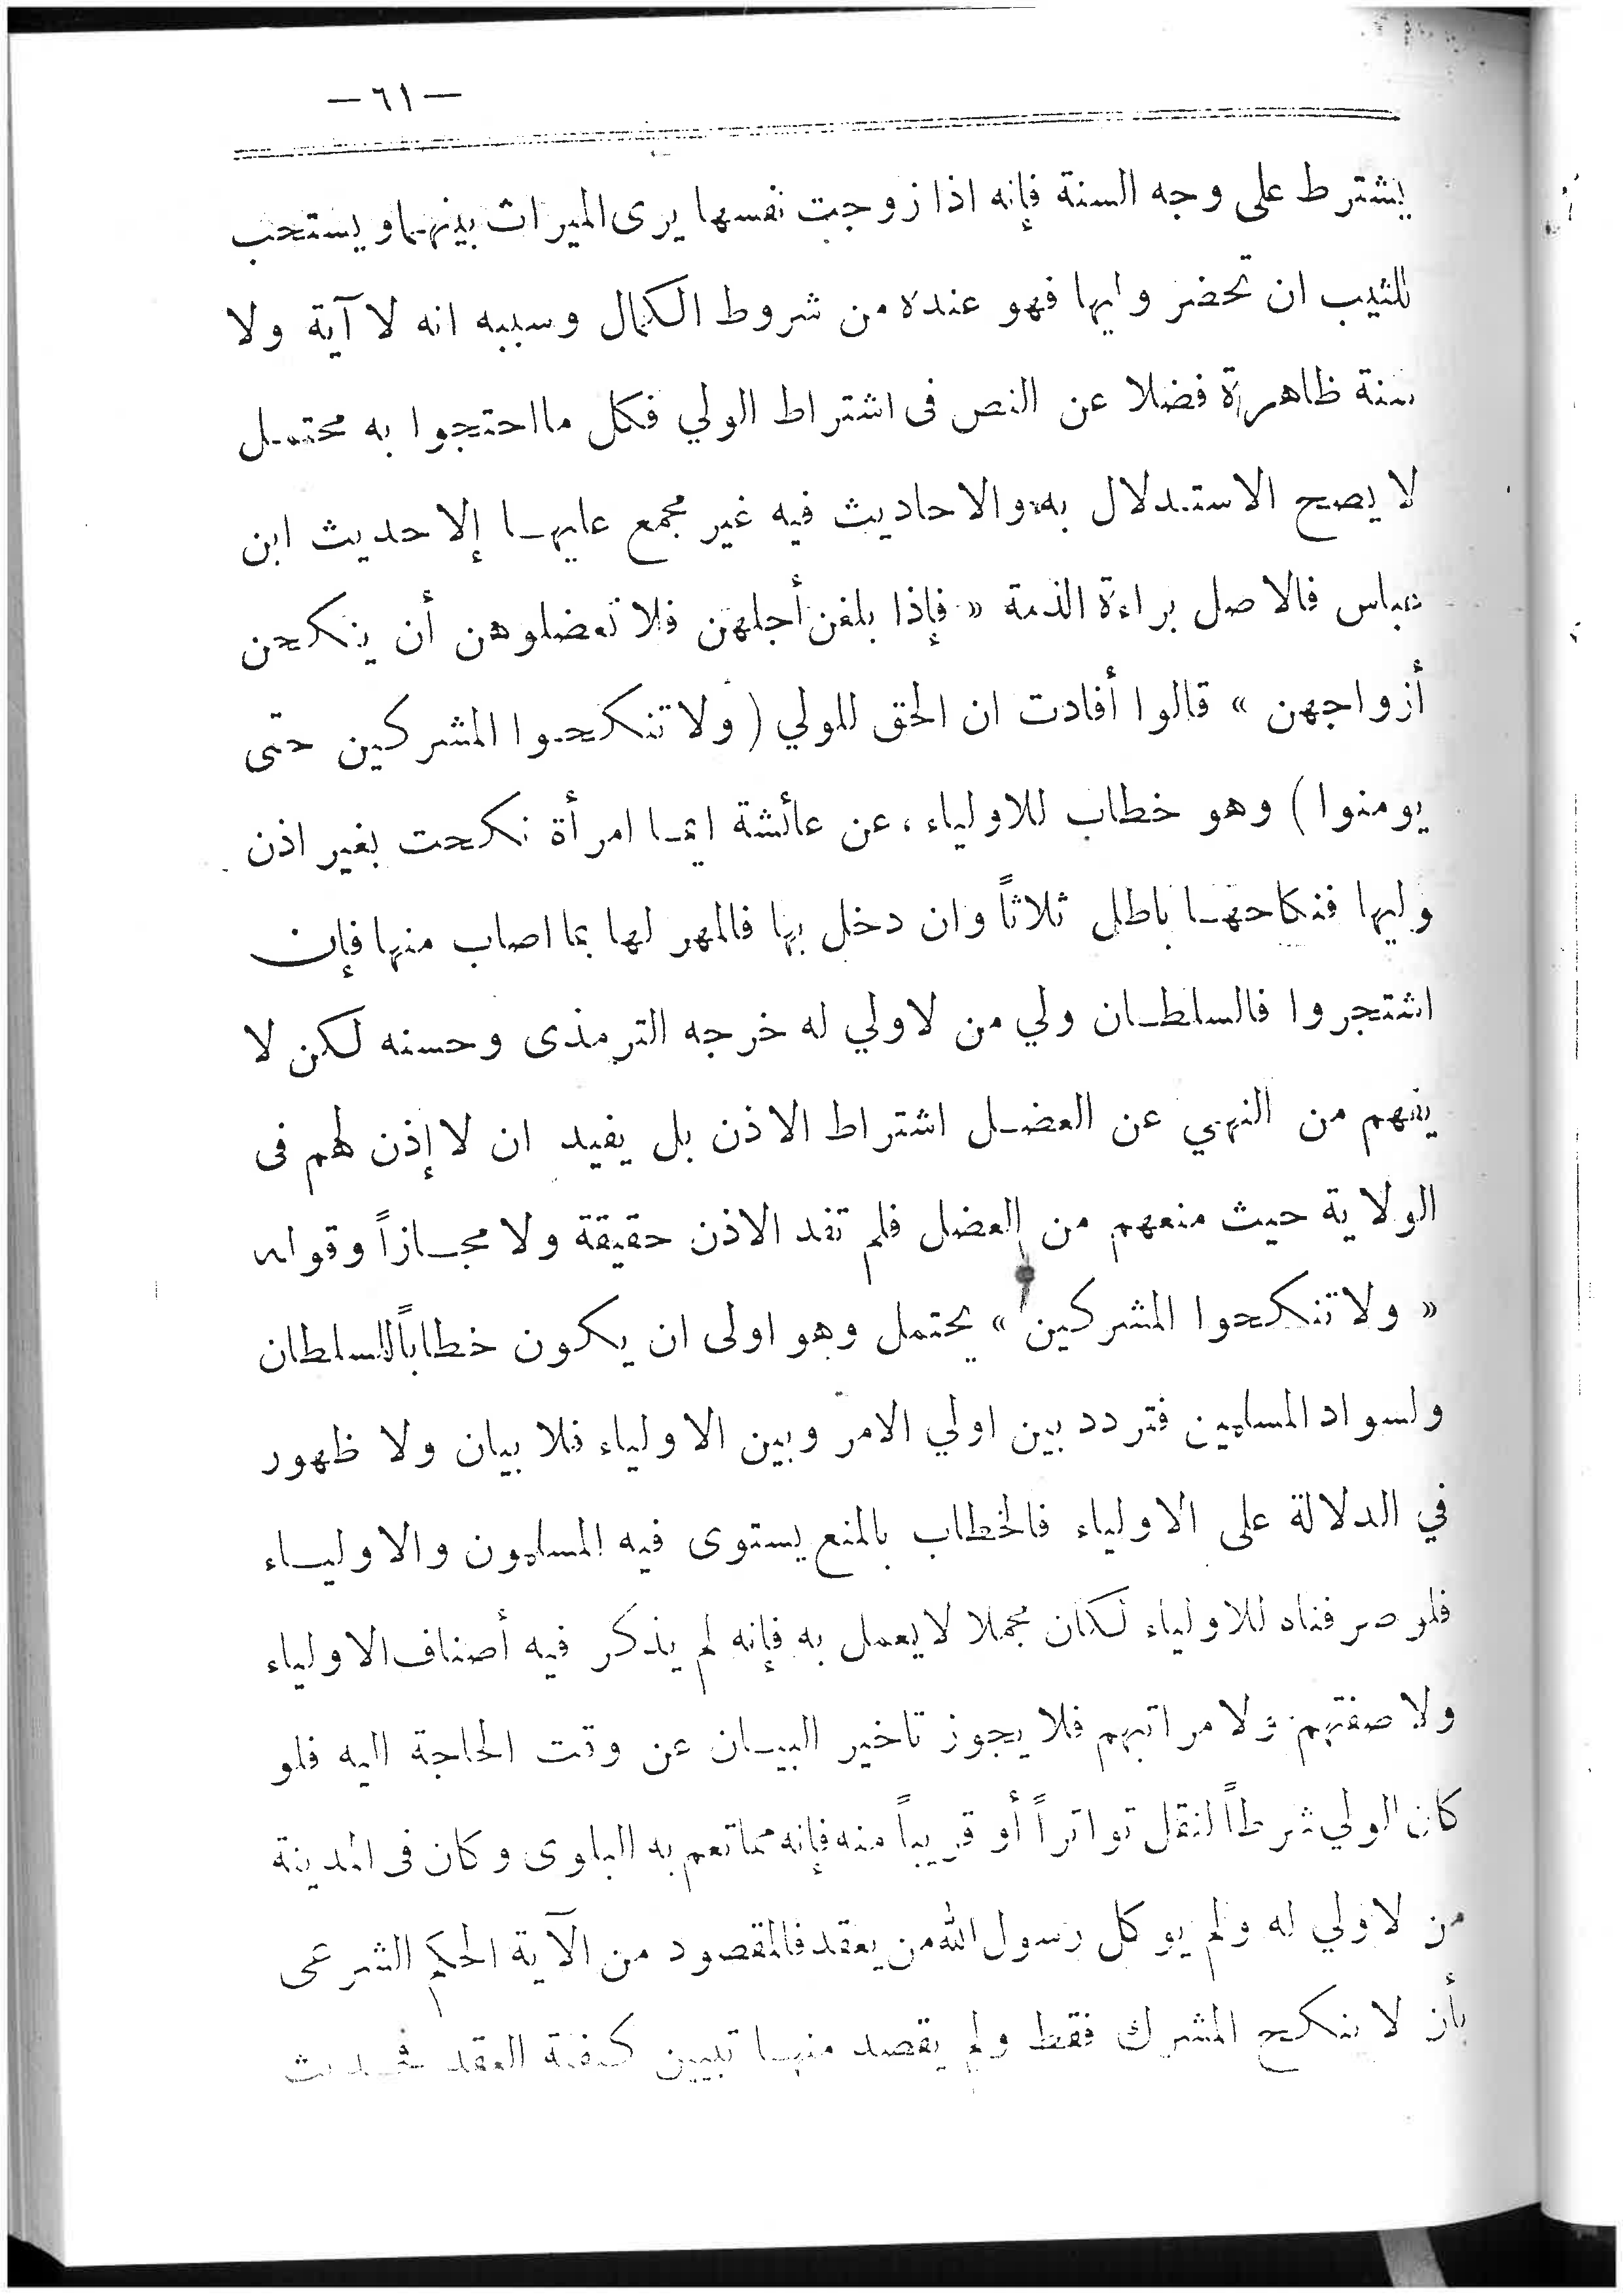 —٦١—
يشترط على وجه السنة فإنه اذا زوجت نفسها يرى الميراث بينهما ويستحب
للثيب ان تحضر وليها فهو عنده من شروط الكمال وسببه انه لا آية ولا
سنة ظاهرة فضلا عن النص فى اشتراط الولي فكل ما احتجوا به محتمل
لا يصح الاستدلال به والاحاديث فيه غير مجمع عليها إلا حديث ابن
عباس فالاصل براءة الذمة « فإذا بلغن أجلهن فلا تعضلوهن أن ينكحن
أزواجهن » قالوا أفادت ان الحق للولي ( ولا تنكحوا المشركين حتى
يومنوا ) وهو خطاب للاولياء، عن عائشة ايما امرأة نكحت بغير اذن
وليها فنكاحها باطل ثلاثاً وان دخل بها فالمهر لها بما اصاب منها فإن
اشتجروا فالسلطان ولي من لاولي له خرجه الترمذى وحسنه لكن لا
يفهم من النهي عن العضل اشتراط الاذن بل يفيد ان لا إذن لهم فى
الولاية حيث منعهم من العضل فلم تفد الاذن حقيقة ولا مجازاً وقوله
« ولا تنكحوا المشركين » يحتمل وهو اولى ان يكون خطاباً للسلطان
ولسواد المسلمين فتردد بين اولي الامر وبين الاولياء فلا بيان ولا ظهور
في الدلالة على الاولياء فالخطاب بالمنع يستوى فيه المسلمون والاولياء
فلو صرفناه للاولياء لكان مجملا لا يعمل به فإنه لم يذكر فيه أصناف الاولياء
ولا صفتهم ولا مراتبهم فلا يجوز تاخير البيان عن وقت الحاجة اليه فلو
كان الولي شرطاً لنقل تواتراً أو قريباً منه فإنه مما تعم به البلوى وكان فى المدينة
من لاولي له ولم يوكل رسول الله من يعقد فالمقصود من الآية الحكم الشرعى
بأن لا ينكح المشرك فقط ولم يقصد منها تبيين كيفية العقد فحديث